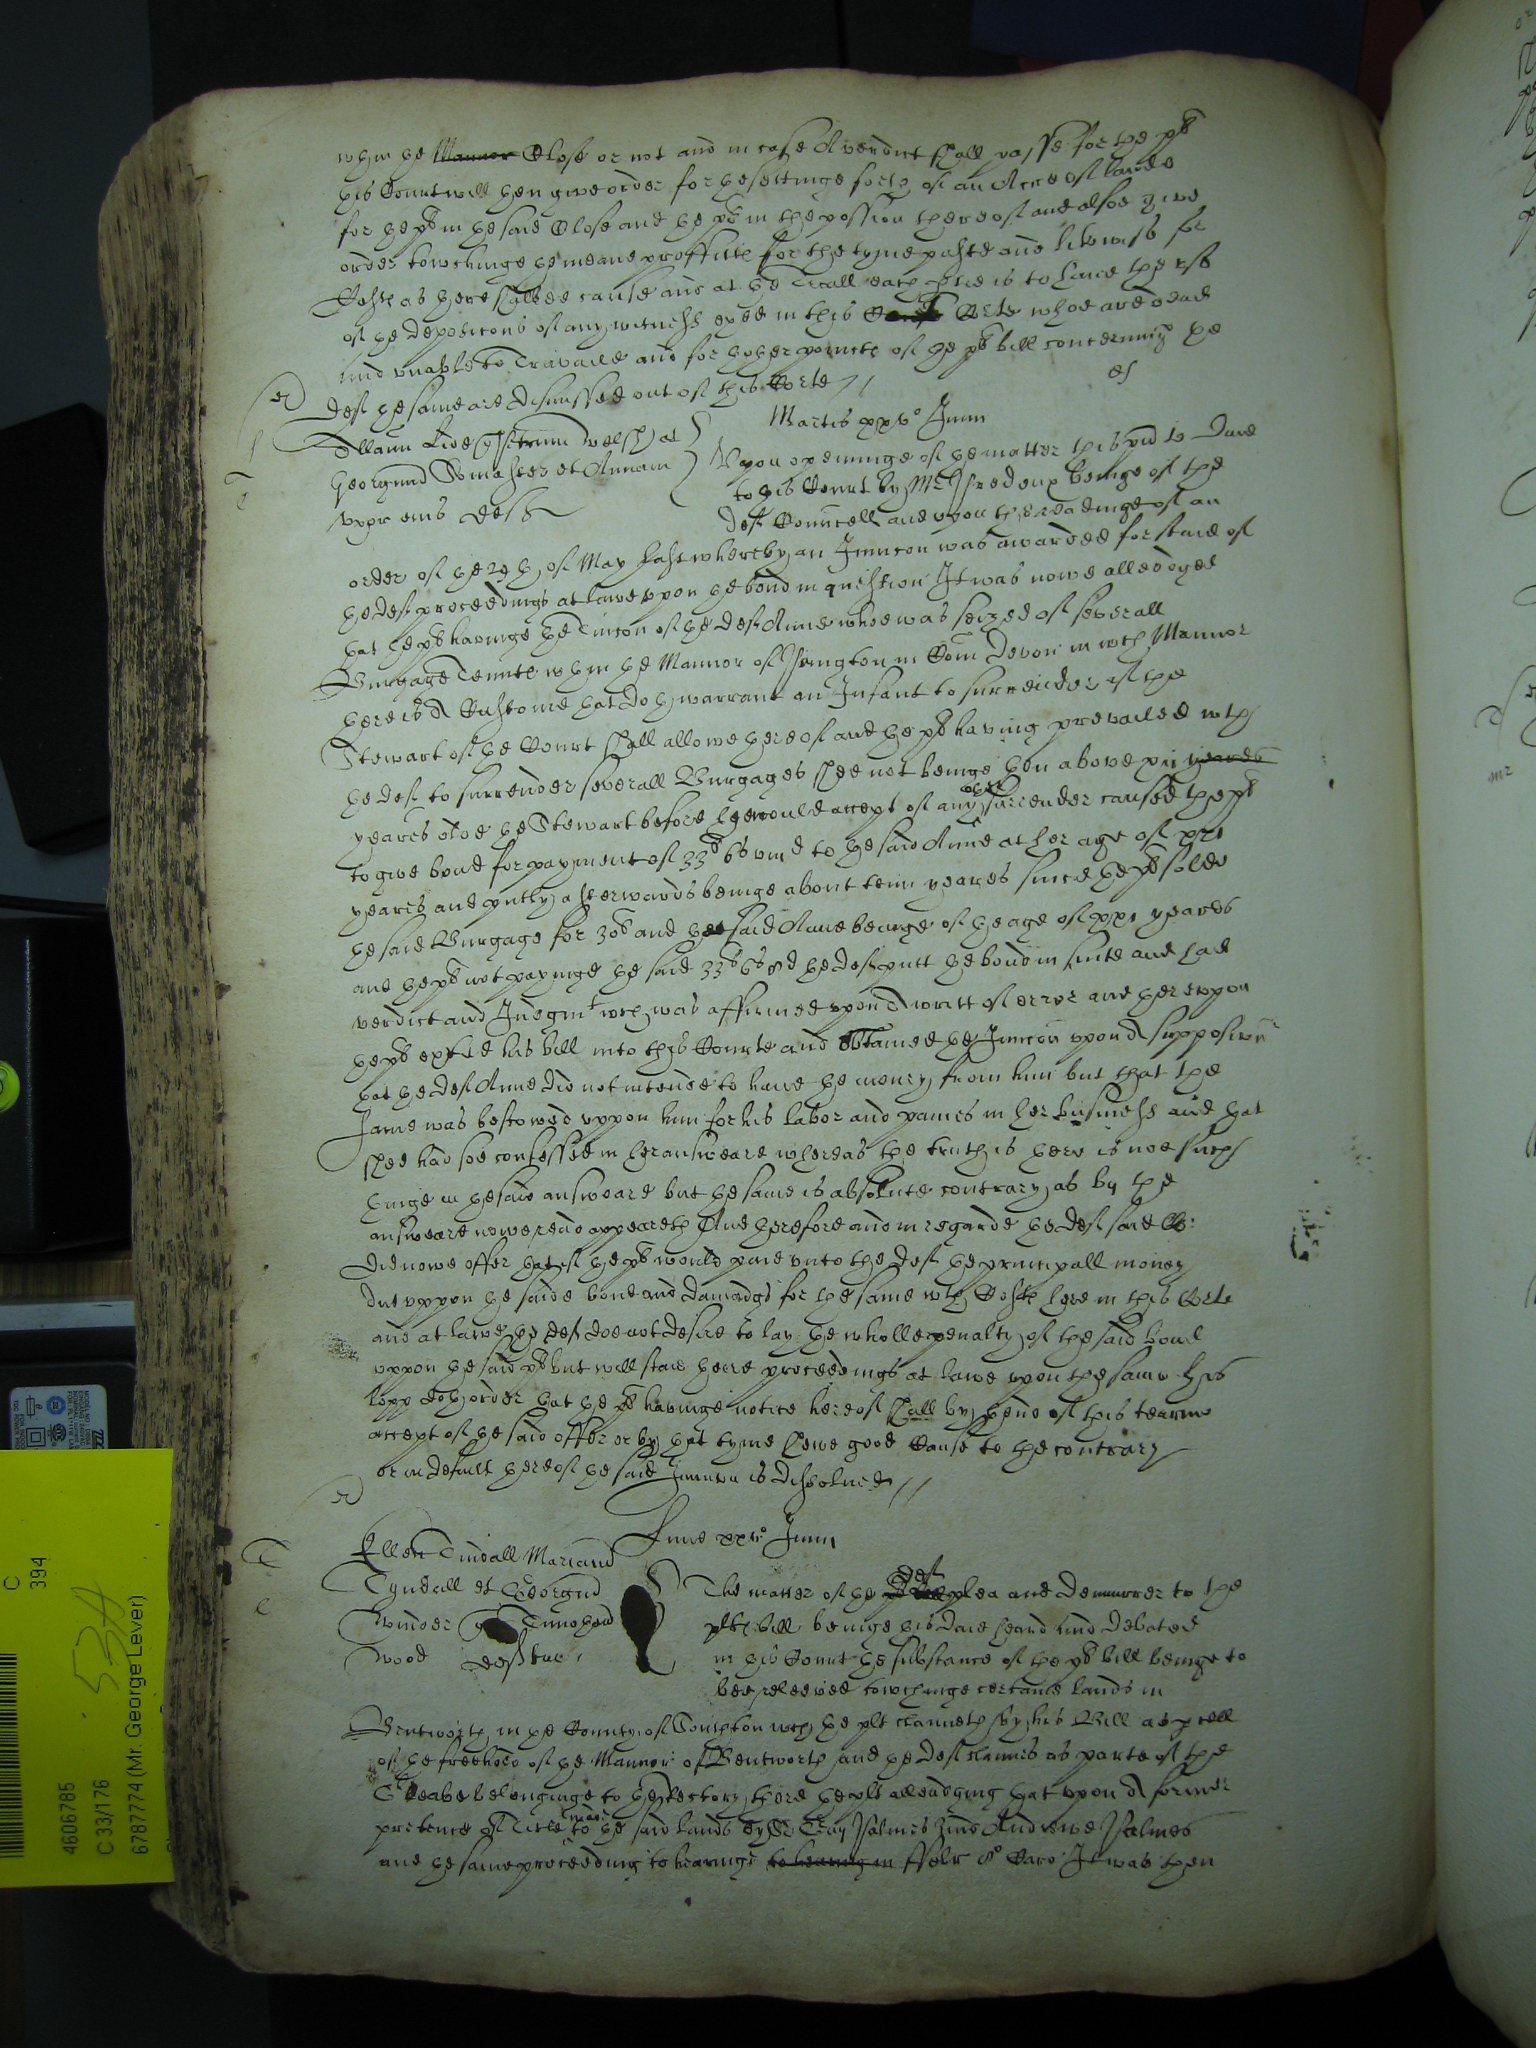 wthin the Mannor Close or not and in case A verdict shall passe for the plt
this Court will then give order for the settinge forth of an Acre of lande
for the plt in the said Close and the plt in the possion thereof and alsoe give
order towchinge the meane proffitts for the tyme paste and likewise for
Costs as there shalbee cause and at the Triall each side is to have the use
of the deposicons of any witness exed in this Corte whoe are dead
and unable to Travaile and for other poyncts of the plt bill concerning the
deft the same are dismissed out of this Corte //
Martis xxv° Junii
Upon openinge of the matter this daie
to this Court by Mr beinge of the
deft Councell and upon the readinge of an
Georgium et Annam
uxor eius deft
order of the 29th of May last whereby an Iniuncon was awarded for staie of
the deft proceedings at lawe upon the bond in question It was nowe alleadged
that the plt havinge the Tuicon of the deft Anne whoe was seized of severall
Burgage Tenemts wthin the Mannor of in Com Devon in wch Mannor
there is A Custome that doth warrant an Infant to surrender if the
Stewart of the Court shall allowe thereof and the plt having prevailed wth
the deft to surrender severall Burgages shee not beinge then above xii yeares
yeares olde the Stewart before he would accept of any such surrender caused the plt
to give bond for payment of 33li 6s viiid to the said Anne at her age of xxi
yeares and pntly afterwards beinge about tenn yeares since the plt solde
the said Burgage for 30li and the said Anne beinge of the age of xxi yeares
and the plt not payinge the said 33li 6s 8d the deft putt the bond in suite and had
verdict and Iudgmt wch was affirmed upon A writt of error and thereupon
the plt exhited his bill into this Courte and obtained the Iniuncon upon A supposicon
that the deft Anne did not intende to have the money from him but that the
same was bestowed uppon him for his labor and paines in her business and that
shee had soe confessed in her answeare whereas the truth is there is noe such
thinge in the said answeare but the same is absolute contrary as by the
answeare nowe read appeareth And therefore and in regarde the deft said
did nowe offer that if the plt would paie unto the deft the principall money
due uppon the saide bond and damadgs for the same wth Costs here in this Corte
and at lawe the deft doe not desire to lay the wholle penalty of the said bond
uppon the said plt but will staie their proceedings at lawe upon the same his
lopp doth order that the plt havinge notice hereof shall by thend of this tearme
accept of the said offer or by that tyme shewe good Cause to the contrary
or in default thereof the said Iniuncon is dissolved //
Lune Junii
Ellen Tindall Mariana
Tyndall et Georgius
Winder Timothead
wood deftem
The matter of the deft plea and demurrer to the
plts bill beinge this daie heard and debated
in this Court the substance of the plt bill beinge to
bee releeved towchinge certaine lands in
Bentworth in the County of Southton wch the plt claimeth by his Bill as pcell
of the freehold of the Mannor of Bentworth and the deft claimes as parte of the
Gleabe belonginge to the Rectory there the plt alleadging that upon A former
pretence of Title made to the said lands by Sr and Andrewe
and the same proceeding to hearinge to hearing in 8° Caro It was then
4606785
C 33/176
6787774 (Mr. George Lever)
C
394
53A